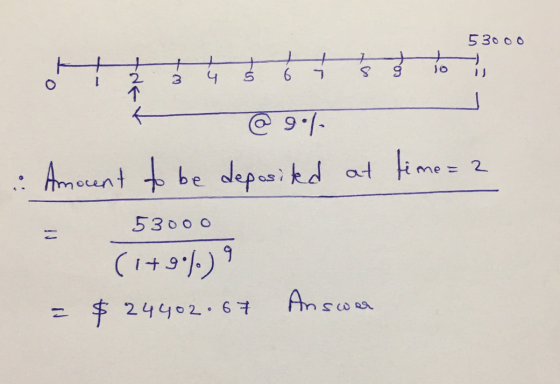 53000
0 1 2 3 4 5 6 7 8 9 10 11
@ 9%
∴ Amount to be deposited at time = 2
= 53000
(1+9%)^9
= $ 24402.67 Answer